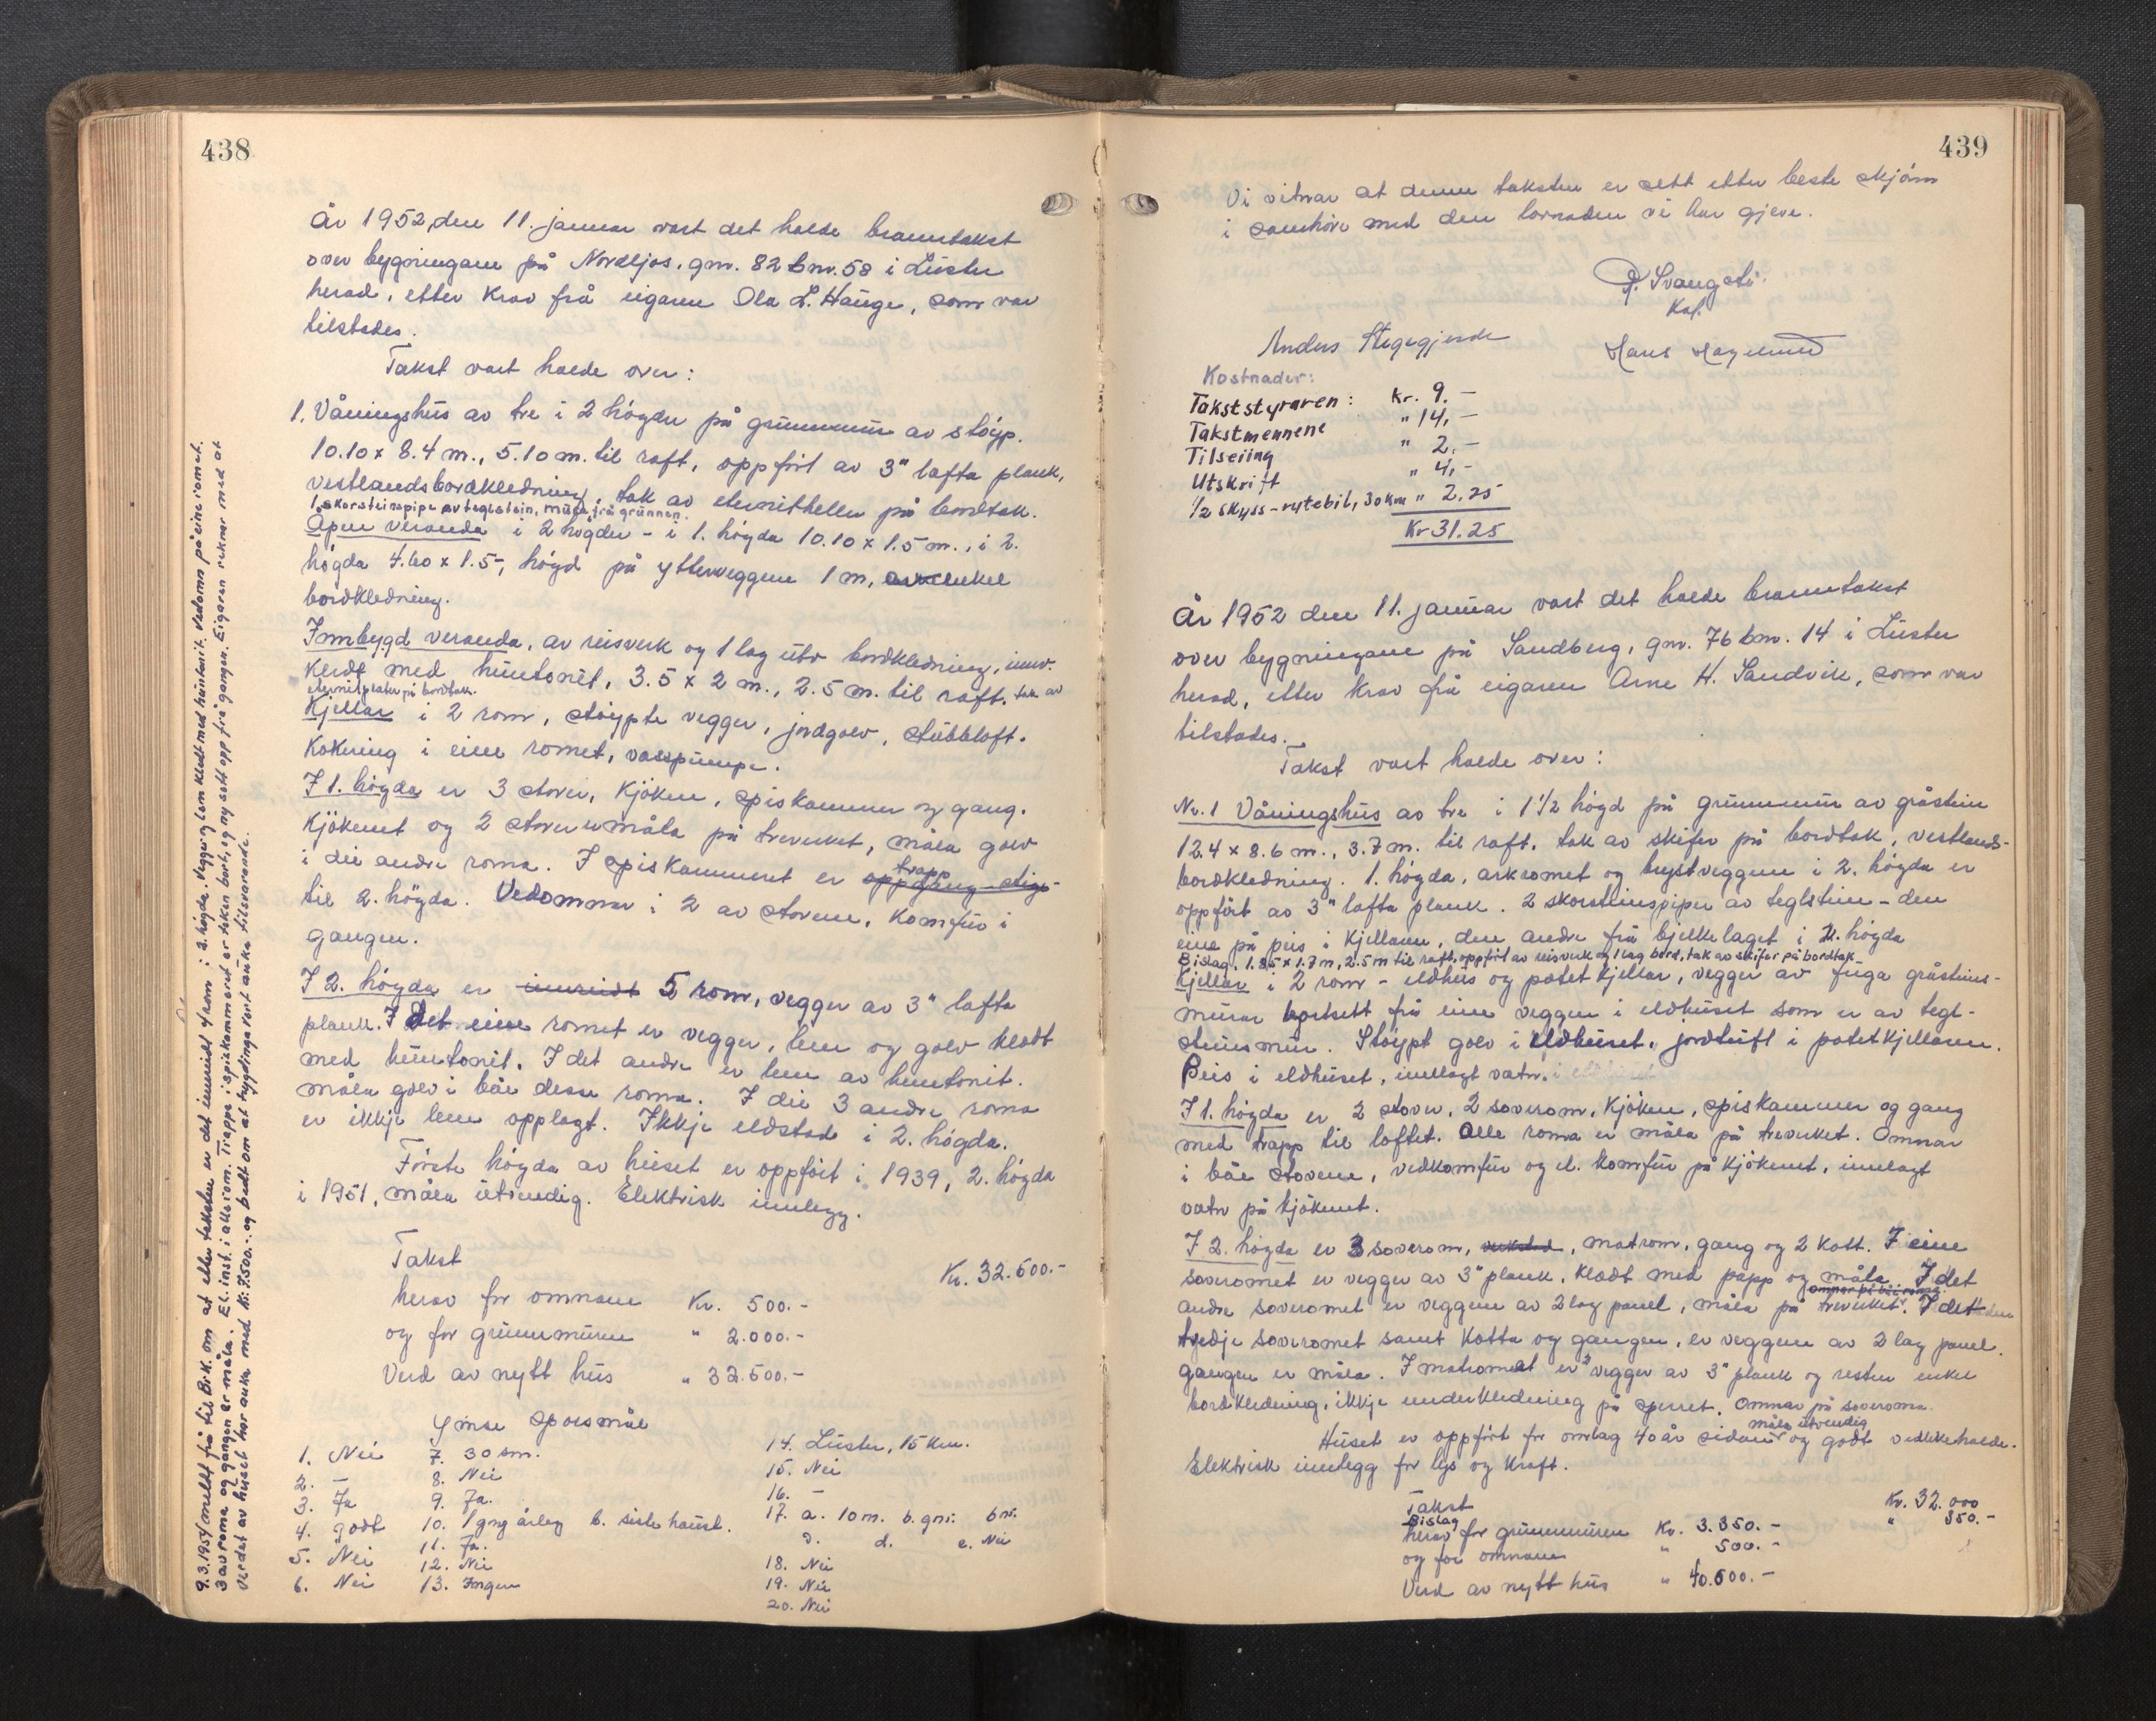 438
År 1952, den 11. januar vart det halde branntakst
over bygningane på Nordljos, gnr. 82 bnr. 58 i Luster
herad, etter krav frå eigaren Ola L. Hauge, som var
tilstades.
Takst vart halde over:
1. Våningshus av tre i 2 högder på grunnmur av stöyp.
10.10 x 8.4 m., 5.10 m. til raft, oppfört av 3" lafta plank,
vestlandsbordkledning, tak av eternitheller på bordtak.
1 skorsteinspipe av teglstein, mura frå grunnen.
Åpen veranda i 2 högder - i 1. högda 10.10 x 1.5 m., i 2.
högda 4.60 x 1.5-, högd på ytterveggene 1 m, enkel
bordkledning.
Innbygd veranda, av reisverk og 1 lag utv bordkledning, innv.
kledt med huntonit, 3.5 x 2 m., 2.5 m. til raft. tak av
eternitplater på bordtak.
Kjellar i 2 rom, stöypte vegger, jordgolv, stubbloft.
Kokning i eine romet, vasspumpe.
I 1. högda er 3 stover, kjöken, spiskammer og gang.
Kjökenet og 2 stover er måla på treverket, måla golv
i dei andre roma. I spiskammeret er oppgang stige-
trapp
til 2. högda. Vedomnar i 2 av stovene, komfur i
gangen.
I 2. högda er innreidt 5 rom, vegger av 3" lafta
plank. I det eine romet er vegger, lem og golv kledt
med huntonit. I det andre er lem av huntonit.
måla golv i båe desse roma. I dei 3 andre roma
er ikkje lem opplagt. Ikkje eldstad i 2. högda.
Förste högda av huset er oppfört i 1939, 2. högda
i 1951, måla utvendig. Elektrisk innlegg.
Takst Kr. 32.500.-
herav for omnane Kr. 500.-
og for grunnmuren " 2.000.-
Verd av nytt hus " 32.500.-
Ymse spörsmål
1. Nei 7. 30 sm. 14. Luster, 15 km.
2. — 8. Nei 15. Nei
3. Ja 9. Ja. 16. —
4. godt 10. 1 gng årleg b. siste haust. 17. a. 10 m. b. gnr. bnr.
5. Nei 11. Ja. d. e. Nei
6. Nei 12. Nei 18. Nei
13. Ingen 19. Nei
20. Nei
9.3.1954 meldt frå til Br.K. om at etter taksten er det innreidt 4 rom i 2. högda. Vegger og lem kledt med huntonit. Vedomn på eine romet.
3 av roma og gangen er måla. El. inst. i alle rom. Trappe i spiskammeret er teken bort, og ny sett opp frå gangen. Eigaren reknar med at
verdet av huset har auka med kr. 7.500.- og bedt om at trygdinga vert auka tilsvarande.
439
Vi vitnar at denne taksten er sett etter beste skjönn
i samhöve med den lovnaden vi har gjeve.
Anders Hegegjerde
Kostnader:
Takststyraren: kr. 9.-
Takstmennene " 14,-
Tilseiing " 2.-
Utskrift " 4,-
1/2 skyss-rutebil, 30 km " 2.25
Kr 31.25
År 1952 den 11. januar vart det halde branntakst
over bygningane på Sandberg, gnr. 76 bnr. 14 i Luster
herad, etter krav frå eigaren Arne H. Sandvik, som var
tilstades.
Takst vart halde over:
Nr. 1 Våningshus av tre i 1 1/2 högd på grunnmur av gråstein
12.4 x 8.6 m., 3.7 m. til raft, tak av skifer på bordtak, vestlands-
bordkledning. 1. högda, arkromet og brystveggene i 2. högda er
oppfört av 3" lafta plank. 2 skorsteinspiper av teglstein - den
eine på peis i kjellaren, den andre frå bjelkelaget i 1. högda
Bislag, 1.85 x 1.7 m, 2.5 m til raft, oppfört av reisverk og 1 lag bord, tak av skifer på bordtak
Kjellar i 2 rom - eldhus og potetkjellar, vegger av fuga gråsteins-
murar bortsett frå eine veggen i eldhuset som er av tegl-
steinsmur. Stöypt golv i eldhuset, jordtuft i potetkjellaren.
Peis i eldhuset, innlagt vatn.
I 1. högda er 2 stover, 2 soverom, kjöken, spiskammer og gang
med trapp til loftet. Alle roma er måla på treverket. Omnar
i båe stovene, vedkomfur og el. komfur på kjökenet, innlagt
vatn på kjökenet.
I 2. högda er 3 soverom, , matrom, gang og 2 kott. I eine
soveromet er vegger av 3" plank, kledt med papp og måla. I det
andre soveromet er veggene av 2 lag panel, måla på treverket. I det
omnar på båe roma.
tredje soveromet samt kotta og gangen, er veggene av 2 lag panel.
gangen er måla. I matromet er 3 vegger av 3" plank og resten enkel
bordkledning, ikkje underkledning på sperret. Omnar på soveroma.
Huset er oppfört for omlag 40 år sidan og godt vedlikehalde.
måla utvendig
Elektrisk innlegg for lys og kraft.
Takst Kr. 32.000
Bislag " 350.-
herav for grunnmuren Kr. 3.350.-
og for omnane " 500.-
Verd av nytt hus " 40.500.-